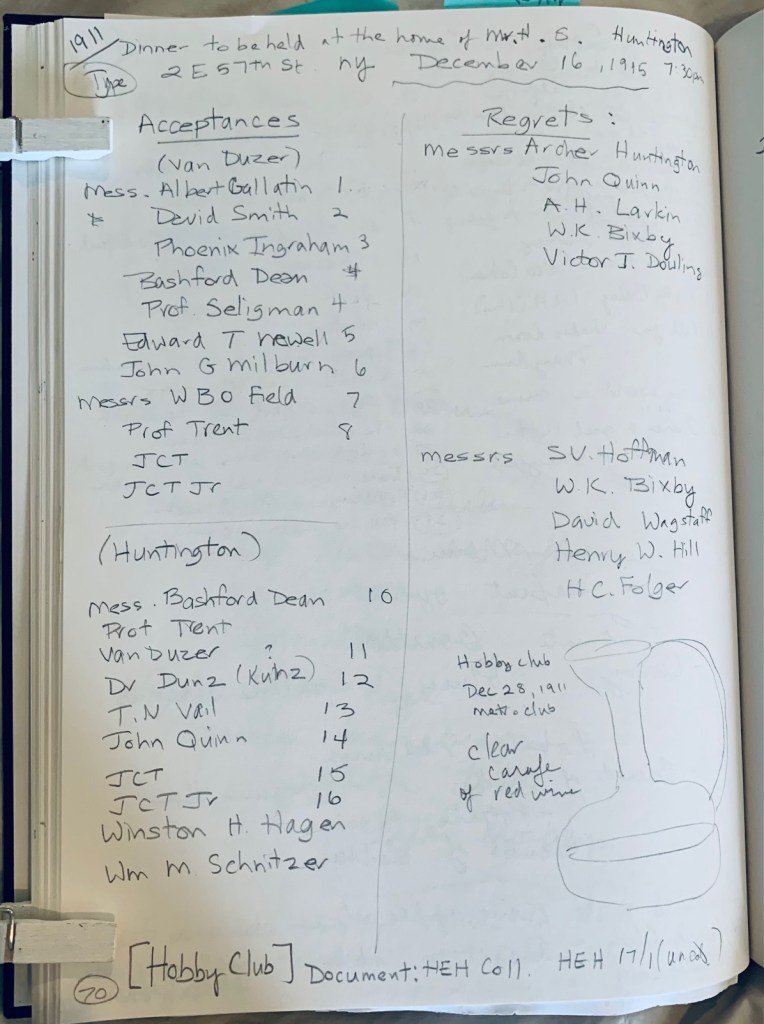 1911
Dinner to be held at the home of Mr. H. E. Huntington
Type
2 E 57th St ny December 16, 1915 7:30pm
Acceptances
(Van Duzer)
Mess. Albert Gallatin 1.
* David Smith 2
Phoenix Ingraham 3
Bashford Dean 4
Prof. Seligman 4
Edward T newell 5
John G milburn 6
messrs WBO Field 7
Prof Trent 8
JCT
JCT Jr
(Huntington)
mess. Bashford Dean 10
Prof Trent
Van Duzer ? 11
Dr Dunz (Kunz) 12
T.N Vail 13
John Quinn 14
JCT 15
JCT Jr 16
Winston H. Hagen
Wm M. Schnitzer
Regrets:
messrs Archer Huntington
John Quinn
A.H. Larkin
W.K. Bixby
Victor J. Douling
messrs SV. Hoffman
W.K. Bixby
David Wagstaff
Henry W. Hill
H C. Folger
Hobby club
Dec 28, 1911
metro club
clear
carafe
of red wine
70 [Hobby Club] Document: HEH Coll. HEH 17/1